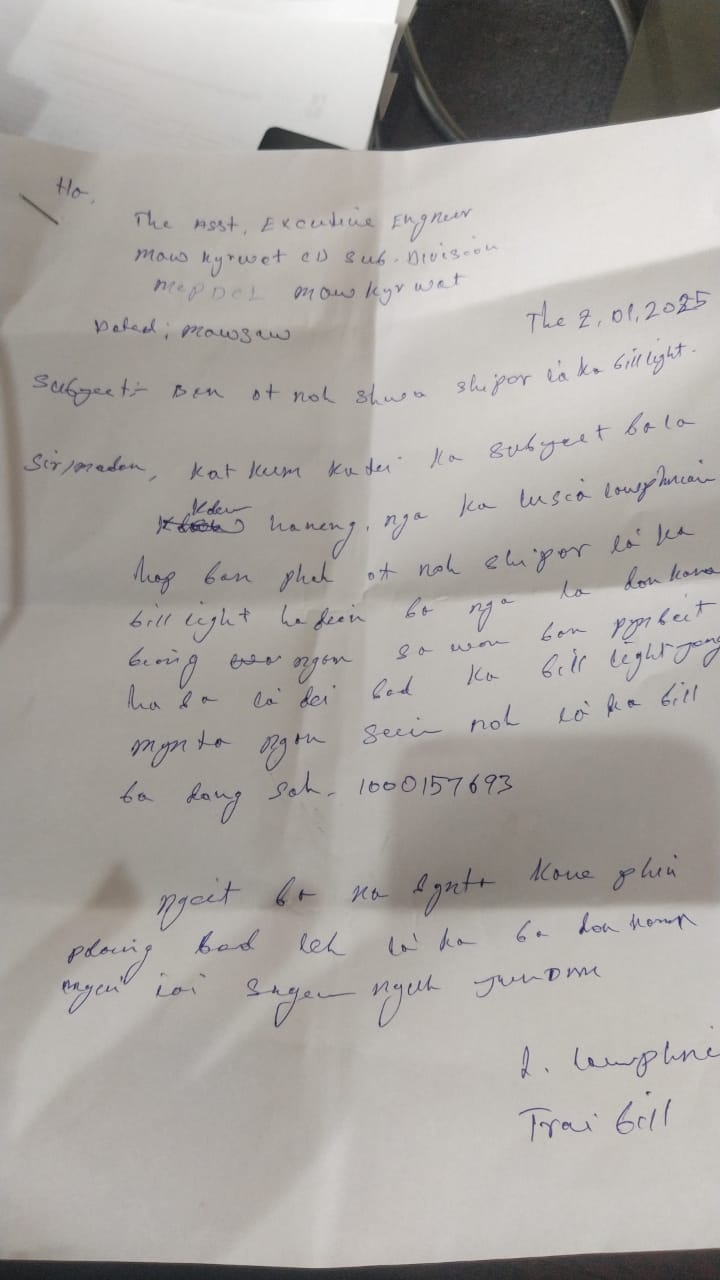 Ha,
The Asst, Excutive Engneer
Mawkyrwat ED Sub-Division
Mepdcl mawkyrwat
Dated; mawsaw The 2, 01, 2025
Subject:- Ban ot noh shwa shipor ia ka bill light.
Sir/madam, kat kum kadei ka subject ba la
kdew haneng, nga ka
hap ban phah ot noh shipor ia ka
bill light hadien ba nga la don kano
ngan sa wan ban pynbeit
ha ba ia dei bad ka bill light jong
mynta ngan seiñ noh ia ka bill
ba dang sah. 1000157693
Ngeit ba na synta kane phin
pdiang bad leh ia ka ba donkam
ngi ioi sngew nguh
Trai bill